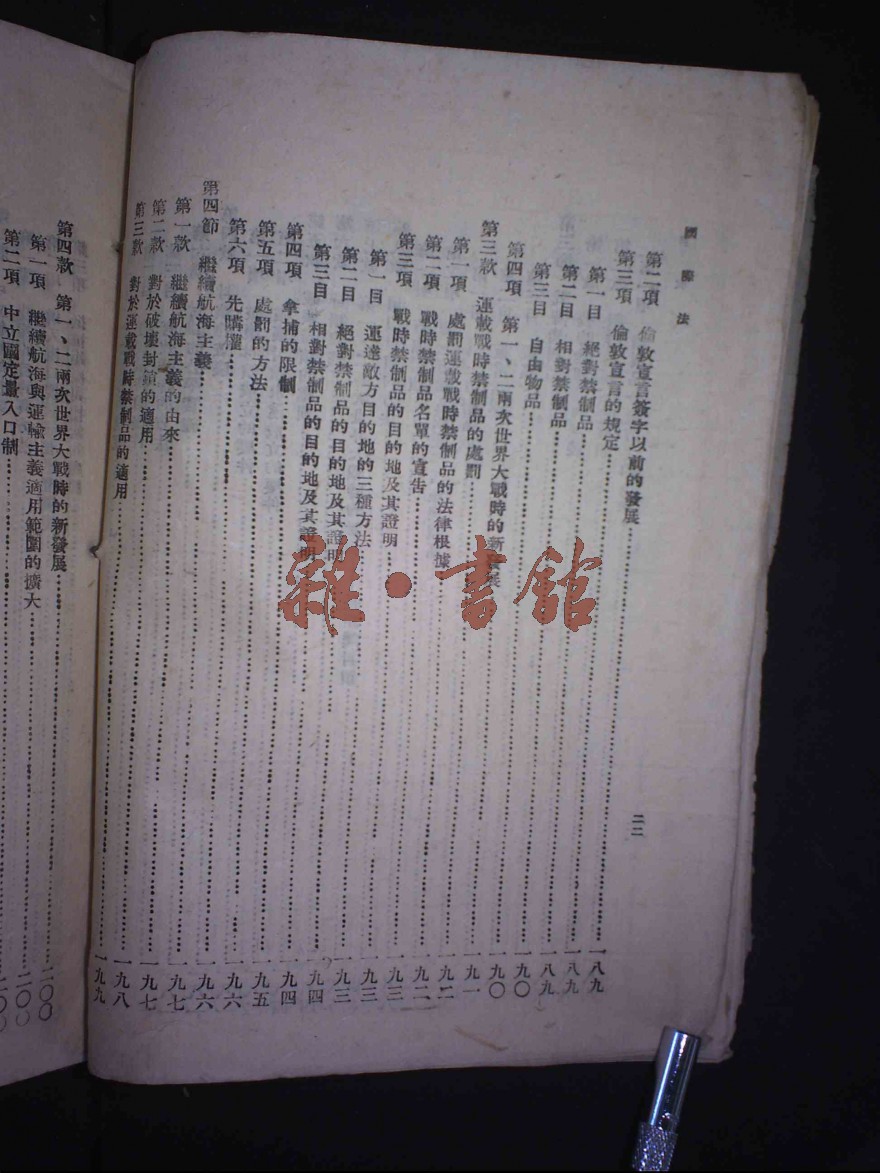 國際法
二二
第二項 倫敦宣言簽字以前的發展……一八九
第三項 倫敦宣言的規定……一八九
第一目 絕對禁制品……一八九
第二目 相對禁制品……一九〇
第三目 自由物品……一九〇
第四項 第一、二兩次世界大戰時的新發展……一九一
第三款 運載戰時禁制品的處罰……一九二
第一項 處罰運載戰時禁制品的法律根據……一九二
第二項 戰時禁制品名單的宣告……一九三
第三項 戰時禁制品的目的地及其證明……一九三
第一目 運達敵方目的地的三種方法……一九三
第二目 絕對禁制品的目的地及其證明……一九四
第三目 相對禁制品的目的地及其證明……一九四
第四項 拿捕的限制……一九五
第五項 處罰的方法……一九六
第六項 先購權……一九六
第四節 繼續航海主義……一九七
第一款 繼續航海主義的由來……一九七
第二款 對於破壞封鎖的適用……一九八
第三款 對於運載戰時禁制品的適用……一九九
第四款 第一、二兩次世界大戰時的新發展……二〇〇
第一項 繼續航海與運輸主義適用範圍的擴大……二〇〇
第二項 中立國定量入口制……二〇〇
雜·書館